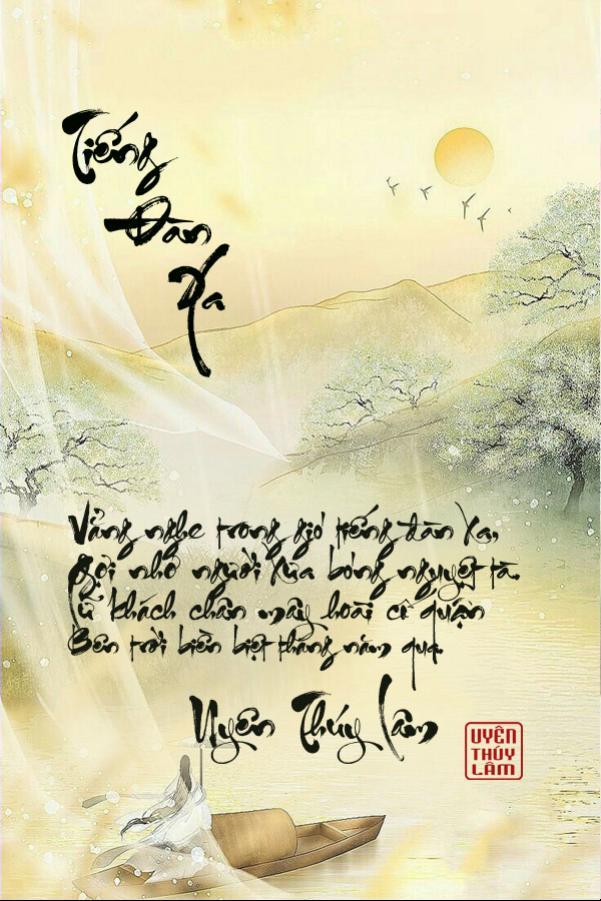 Tiếng
Đàn
Xa
Vẳng nghe trong gió tiếng đàn xa,
Gợi nhớ người xưa bóng nguyệt tà.
Lữ khách chân mây hoài cô quạn
Bên trời biền biệt tháng năm qua.
Uyên Thúy Lâm
UYÊN
THÚY
LÂM